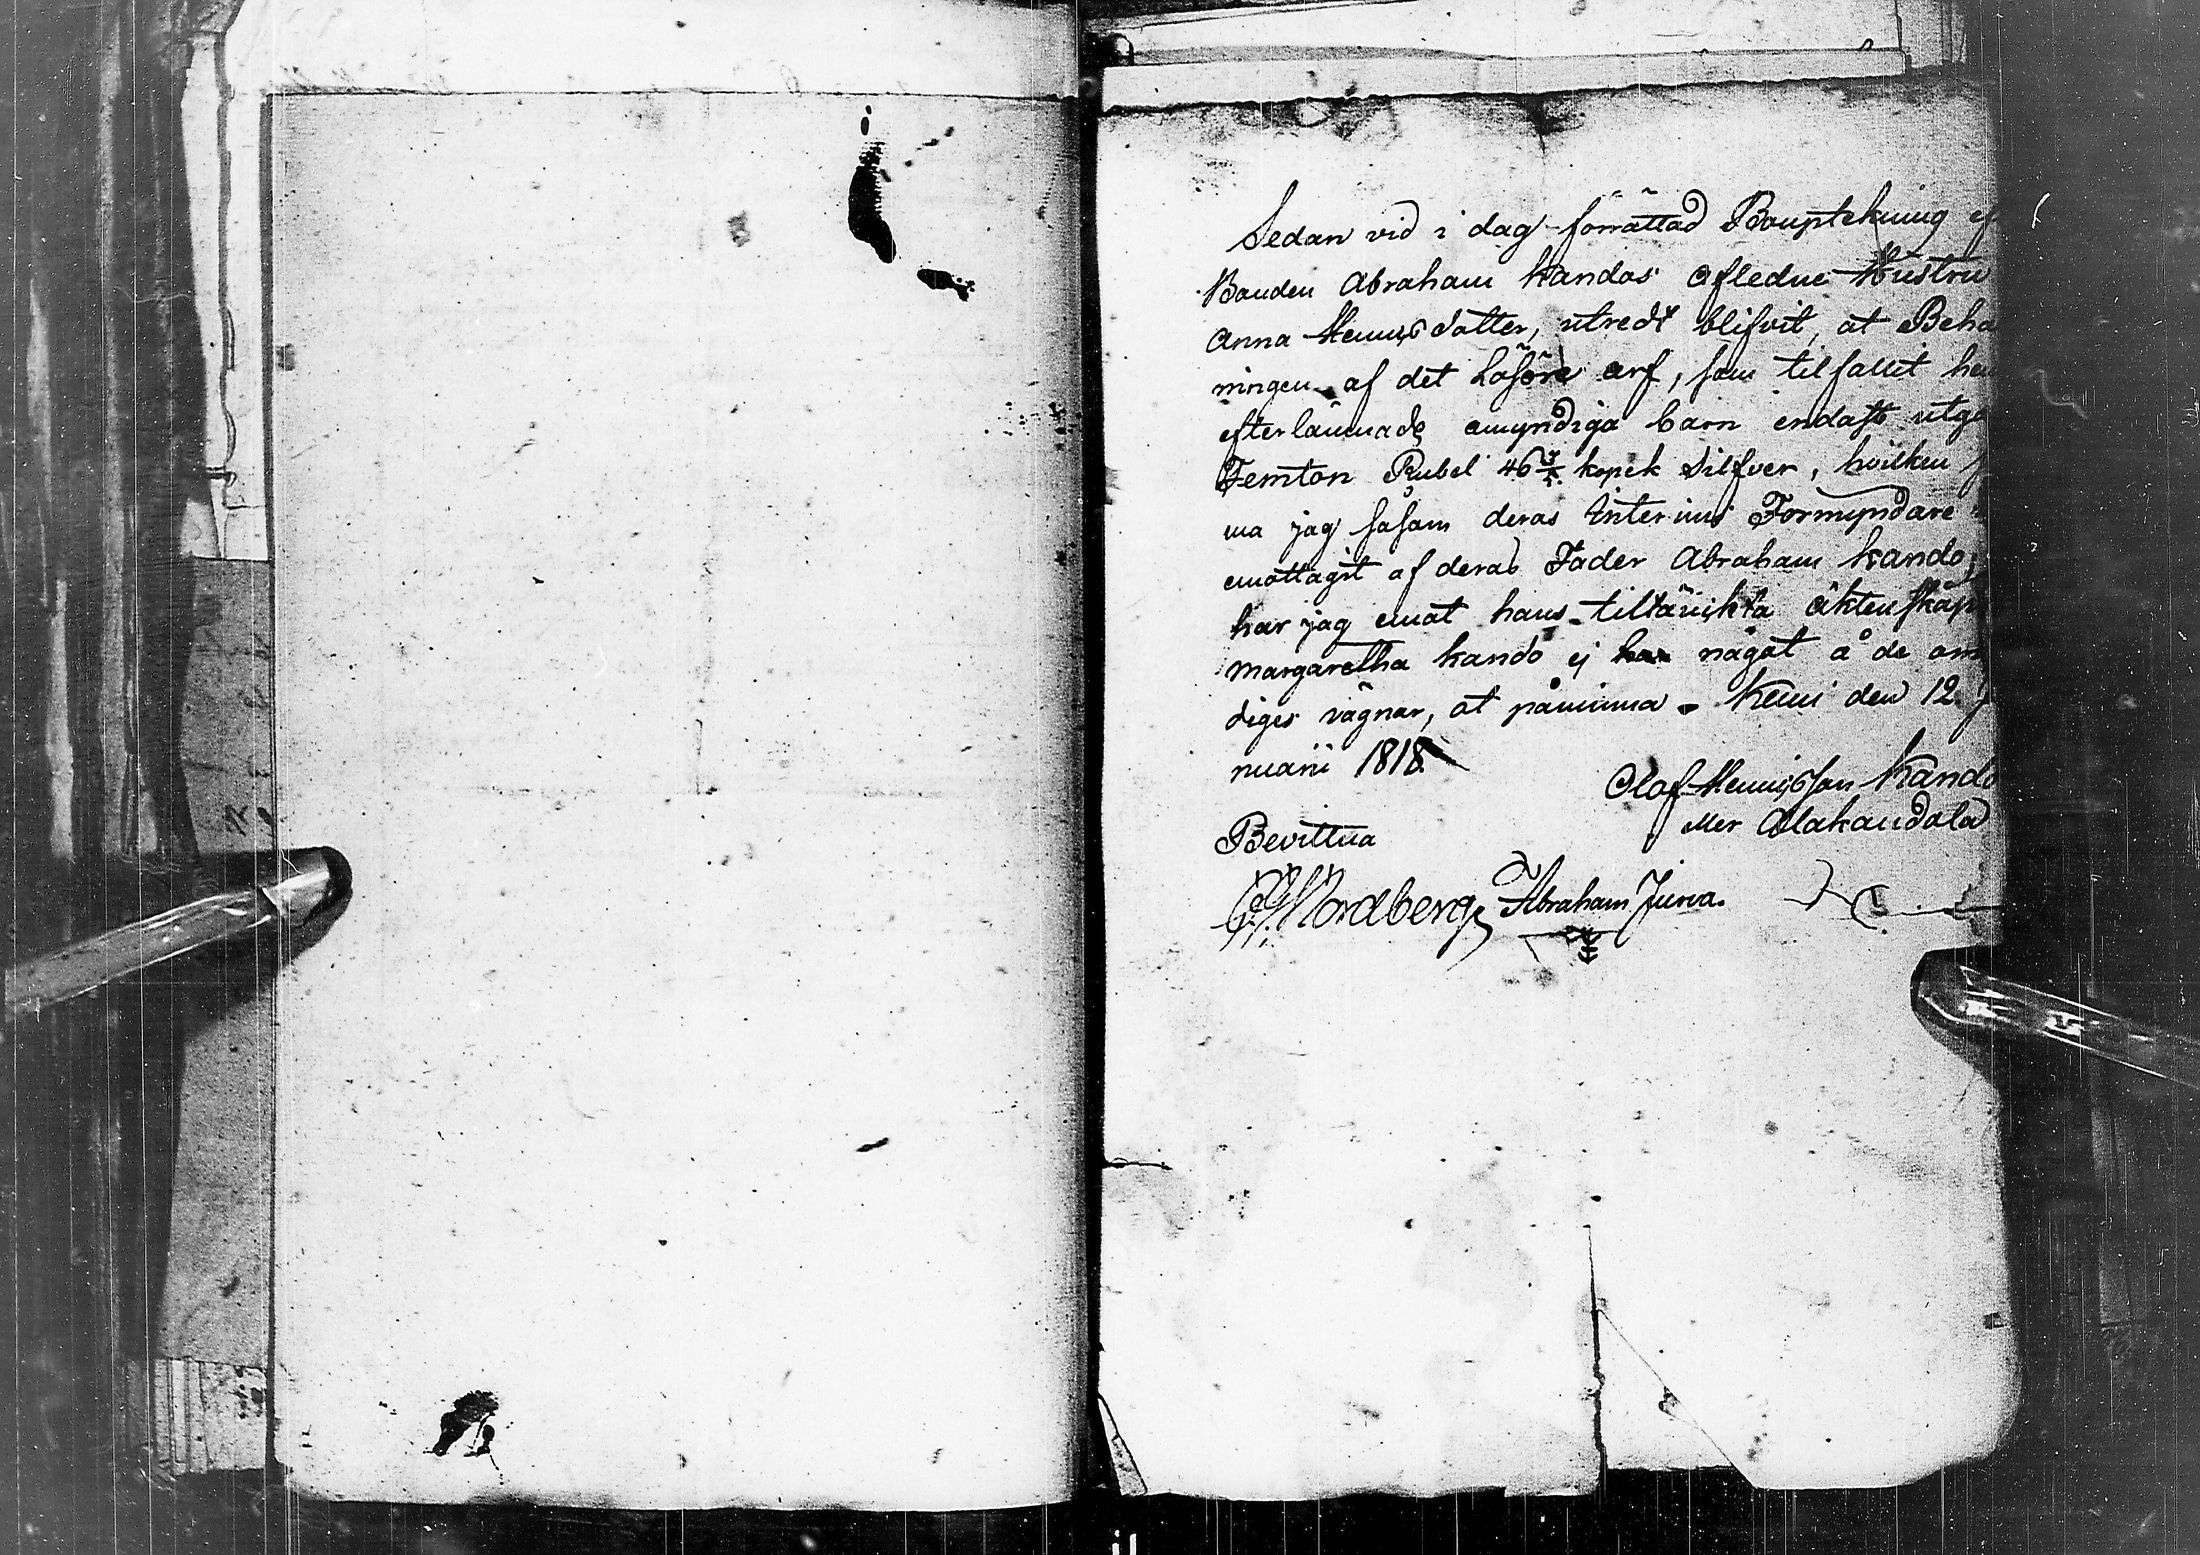 Sedan vid i dag förrättad Bouptekning ef
Bonden Abraham Kandos afledne Hustru
Anna Hennigsdotter, utredt blifvit, at Beho
ningen af det Lösöre arf, som tilfallit
efterlämnade omyndiga barn endast utgö
Femton Rubel 46 kopek Silfver, hvilken
ma jag såsom deras Interims Förmyndare
emottagit af deras Fader Abraham Kando,
har jag emot hans tiltänckta äktenskap
Margaretha Kando ej något å de om
diges vägnar, at påminna. Kemi den 12. J
nuarii 1818.
Olof Hennigsson Kando
eller Alakandola
Bevittna
Nordberg Abraham Jurva.